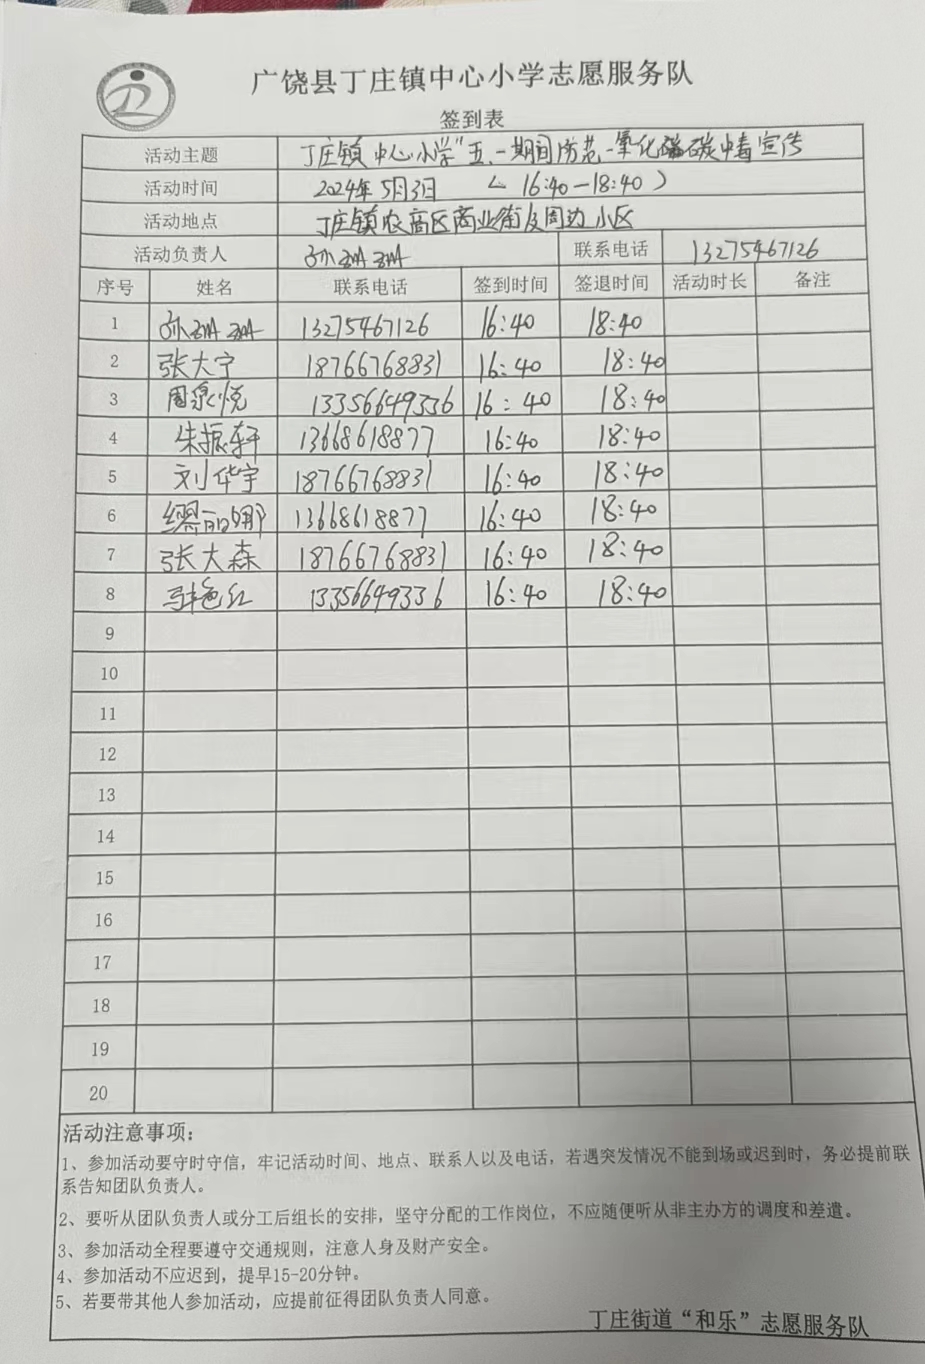 广饶县丁庄镇中心小学志愿服务队
签到表
活动主题 丁庄镇中心小学“五、一期间防范一氧化碳中毒宣传
活动时间 2024年5月3日 （16:40—18:40）
活动地点 丁庄镇农高区商业街及周边小区
活动负责人 孙珊珊 联系电话 13275467126
序号 姓名 联系电话 签到时间 签退时间 活动时长 备注
1 孙珊珊 13275467126 16:40 18:40
2 张大宁 18766768831 16:40 18:40
3 周泉悦 13356649336 16:40 18:40
4 朱振轩 13668618877 16:40 18:40
5 刘华宇 18766768831 16:40 18:40
6 缪丽娜 13668618877 16:40 18:40
7 张大森 18766768831 16:40 18:40
8 艳红 13356649336 16:40 18:40
9
10
11
12
13
14
15
16
17
18
19
20
活动注意事项：
1、参加活动要守时守信，牢记活动时间、地点、联系人以及电话，若遇突发情况不能到场或迟到时，务必提前联
系告知团队负责人。
2、要听从团队负责人或分工后组长的安排，坚守分配的工作岗位，不应随便听从非主办方的调度和差遣。
3、参加活动全程要遵守交通规则，注意人身及财产安全。
4、参加活动不应迟到，提早15-20分钟。
5、若要带其他人参加活动，应提前征得团队负责人同意。
丁庄街道“和乐”志愿服务队